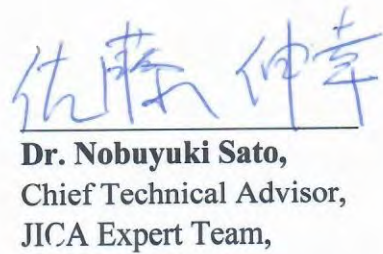 佐藤 伸幸
Dr. Nobuyuki Sato,
Chief Technical Advisor,
JICA Expert Team,